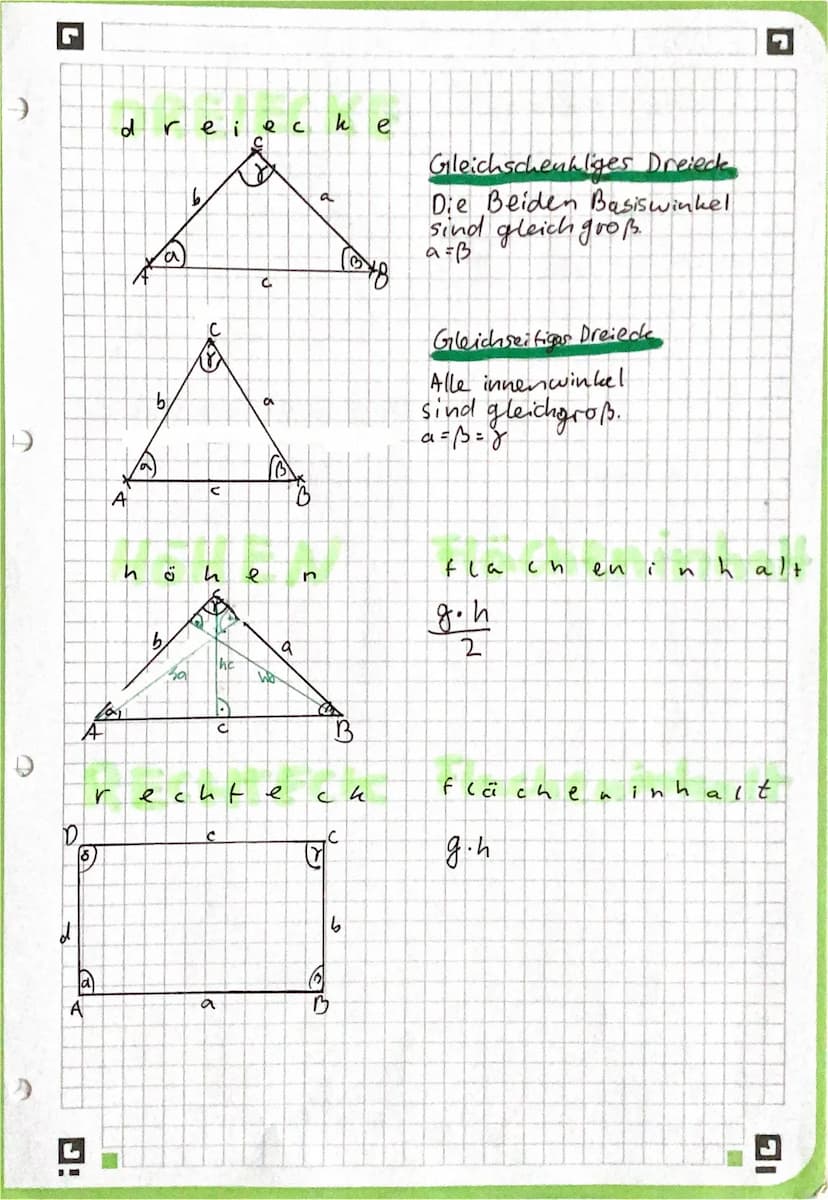 DREIECKE
dreiecke
C
γ
b
a
α
β
A
B
c
Gleichschenkliges Dreieck
Die Beiden Basiswinkel
sind gleich groß.
α=β
C
γ
b
a
α
β
A
c
B
Gleichseitiges Dreieck
Alle innenwinkel
sind gleichgroß.
α=β=γ
HÖHEN
höhen
C
γ
b
a
hc
α
β
A
c
B
Flächeninhalt
flacheninhalt
g·h
2
RECHTECK
rechteck
D
c
C
δ
γ
d
b
α
β
A
a
B
Flächeninhalt
flächeninhalt
g·h